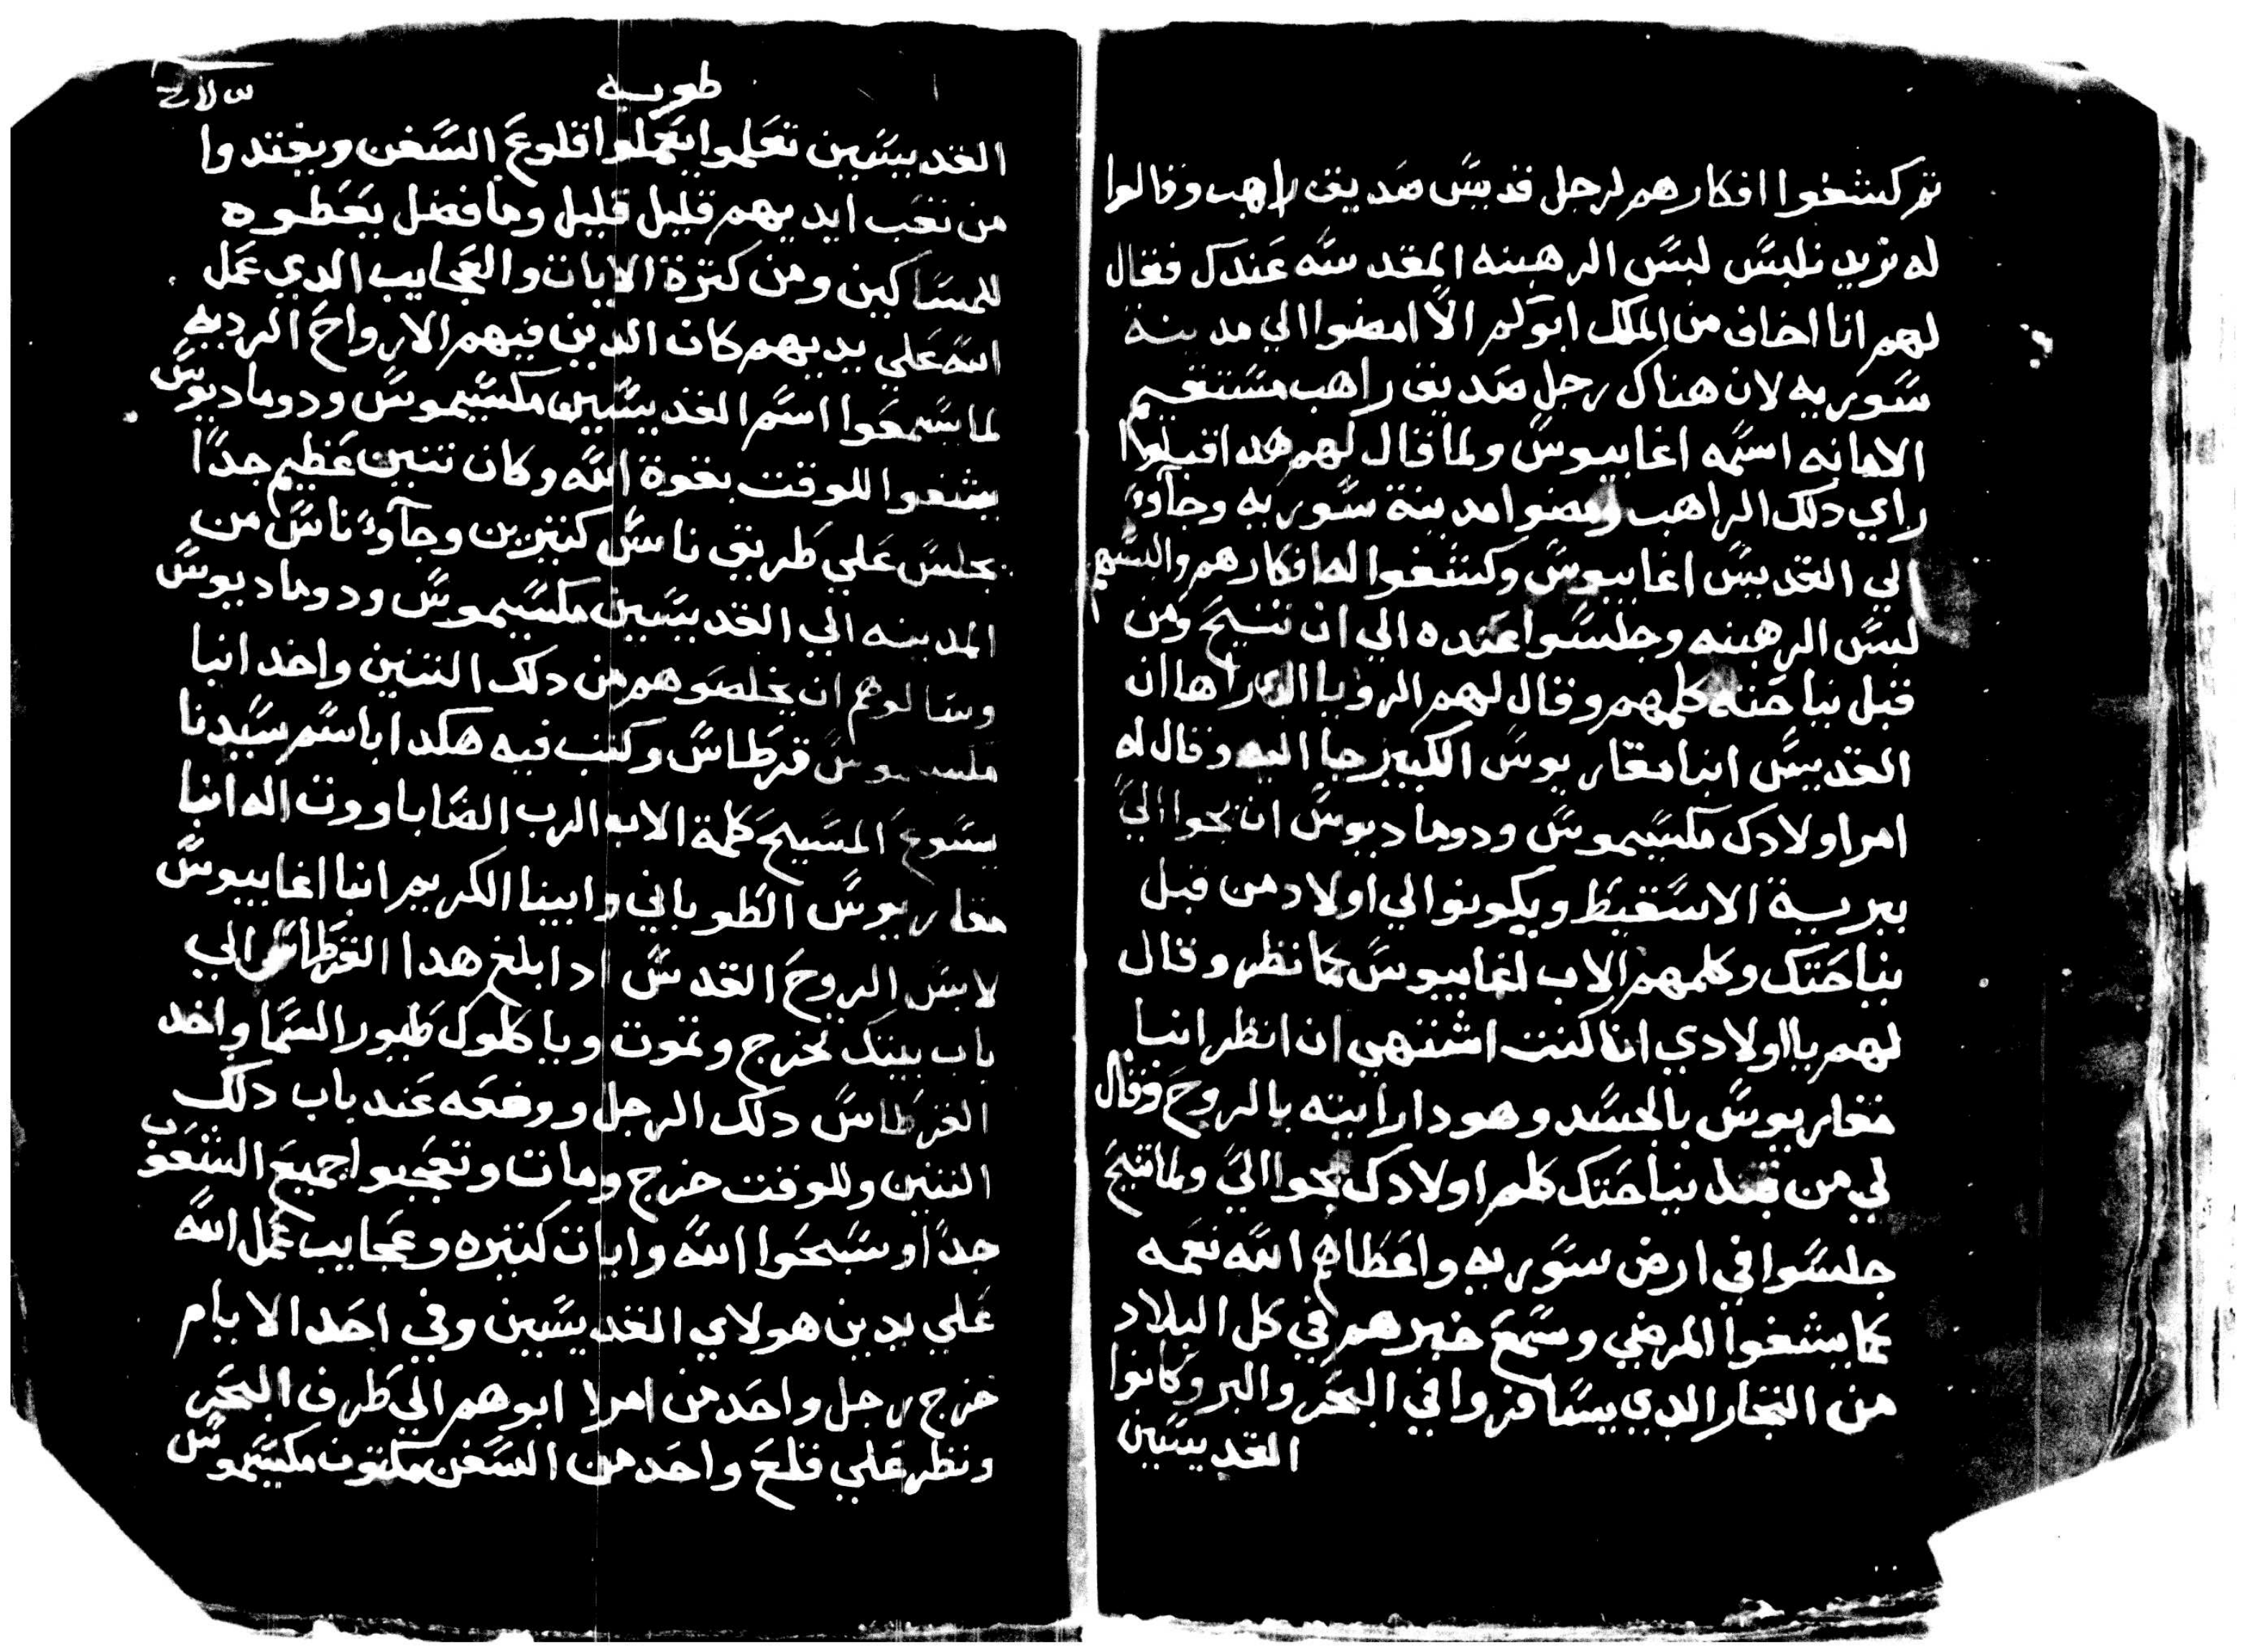 تم كشفوا افكارهم لرجل قديس صديق راهب وقالوا
له نريد نلبس لبس الرهبنه المقدسه عندك فقال
لهم انا اخاف من الملك ابوكم الا امضوا الي مدينة
سوريه لان هناك رجل صديق راهب مستقيم
الامانه اسمه اغابيوس ولما قال لهم هدا اقبلوا
راي دلك الراهب ومضوا مدينة سوريه وجآوا
الي القديس اغابيوس وكشفوا له افكارهم والبسهم
لبس الرهبنه وجلسوا عنده الي ان تنيح ومن
قبل نياحته كلمهم وقال لهم الرويا الدي راها ان
القديس انبا مقاريوس الكبير جا اليه وقال له
امر اولادك مكسيموس ودوماديوس ان يجوا الي
ببرية الاسقيط ويكونوا لي اولاد من قبل
نياحتك وكلمهم الاب اغابيوس كما نظر وقال
لهم يا اولادي انا كنت اشتهي ان انظر انبا
مقاريوس بالجسد وهودا رايته بالروح وقال
لي من قبل نياحتك كلم اولادك يجوا الي ولما تنيح
جلسوا في ارض سوريه واعطاهم الله نعمه
كما يشفوا المرضي وسمع خبرهم في كل البلاد
من التجار الدي يسافروا في البحر والبر وكانوا
القديسين
طوبه
القديسين تعلموا يعملوا قلوع السفن ويقتدوا
من تعب ايديهم قليل قليل وما فضل يعطوه
للمساكين ومن كترة الايات والعجايب الدي عمل
الله علي يديهم كان الدين فيهم الارواح الرديه
لما يسمعوا اسم القديسين مكسيموس ودوماديوس
يشفوا للوقت بقوة الله وكان تنين عظيم جدا
يجلس علي طريق ناس كتيرين وجآوا ناس من
المدينه الي القديسين مكسيموس ودوماديوس
وسالوهم ان يخلصوهم من دلك التنين واخد انبا
مكسيموس قرطاس وكتب فيه هكدا باسم سيدنا
يسوع المسيح كلمة الاب الرب الضاباووت اله انبا
مقاريوس الطوباني وابينا الكريم انبا اغابيوس
لابس الروح القدس ادا بلغ هدا القرطاس الي
باب بيتك تخرج وتموت وياكلوك طيور السما واخد
القرطاس دلك الرجل ووضعه عند باب دلك
التنين وللوقت خرج ومات وتعجبوا جميع الشعوب
جدا وسبحوا الله وايات كتيره وعجايب عمل الله
علي يدين هولاي القديسين وفي احد الايام
خرج رجل واحد من امرا ابوهم الي طرف البحر
ونظر علي قلع واحد من السفن مكتوب مكسيموس